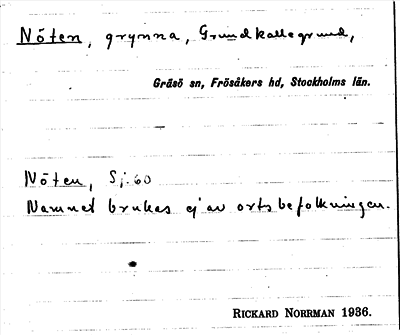 Nöten, grynna, Grundkallegrund,
Gräsö sn, Frösåkers hd, Stockholms län.
Nöten, Sj. 60
Namnet brukas ej av ortsbefolkningen.
RICKARD NORRMAN 1936.